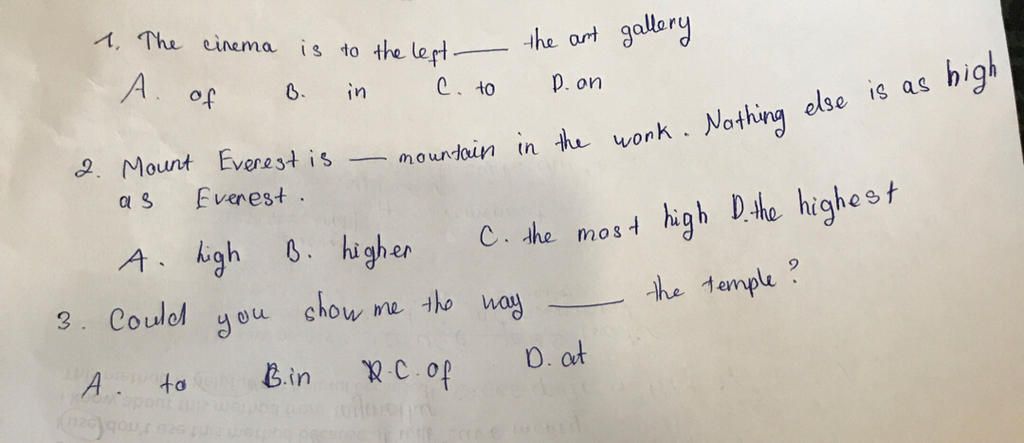 1. The cinema is to the left ___ the art gallery
A. of B. in C. to D. on
2. Mount Everest is ___ mountain in the work. Nothing else is as high
as Everest.
A. high B. higher C. the most high D. the highest
3. Could you show me the way ___ the temple?
A. to B. in C. of D. at